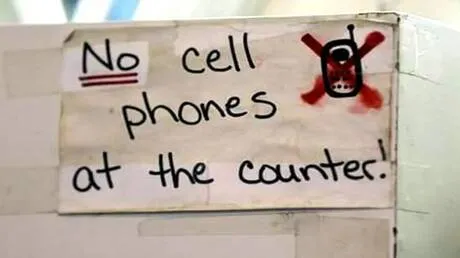 No cell
phones
at the counter!